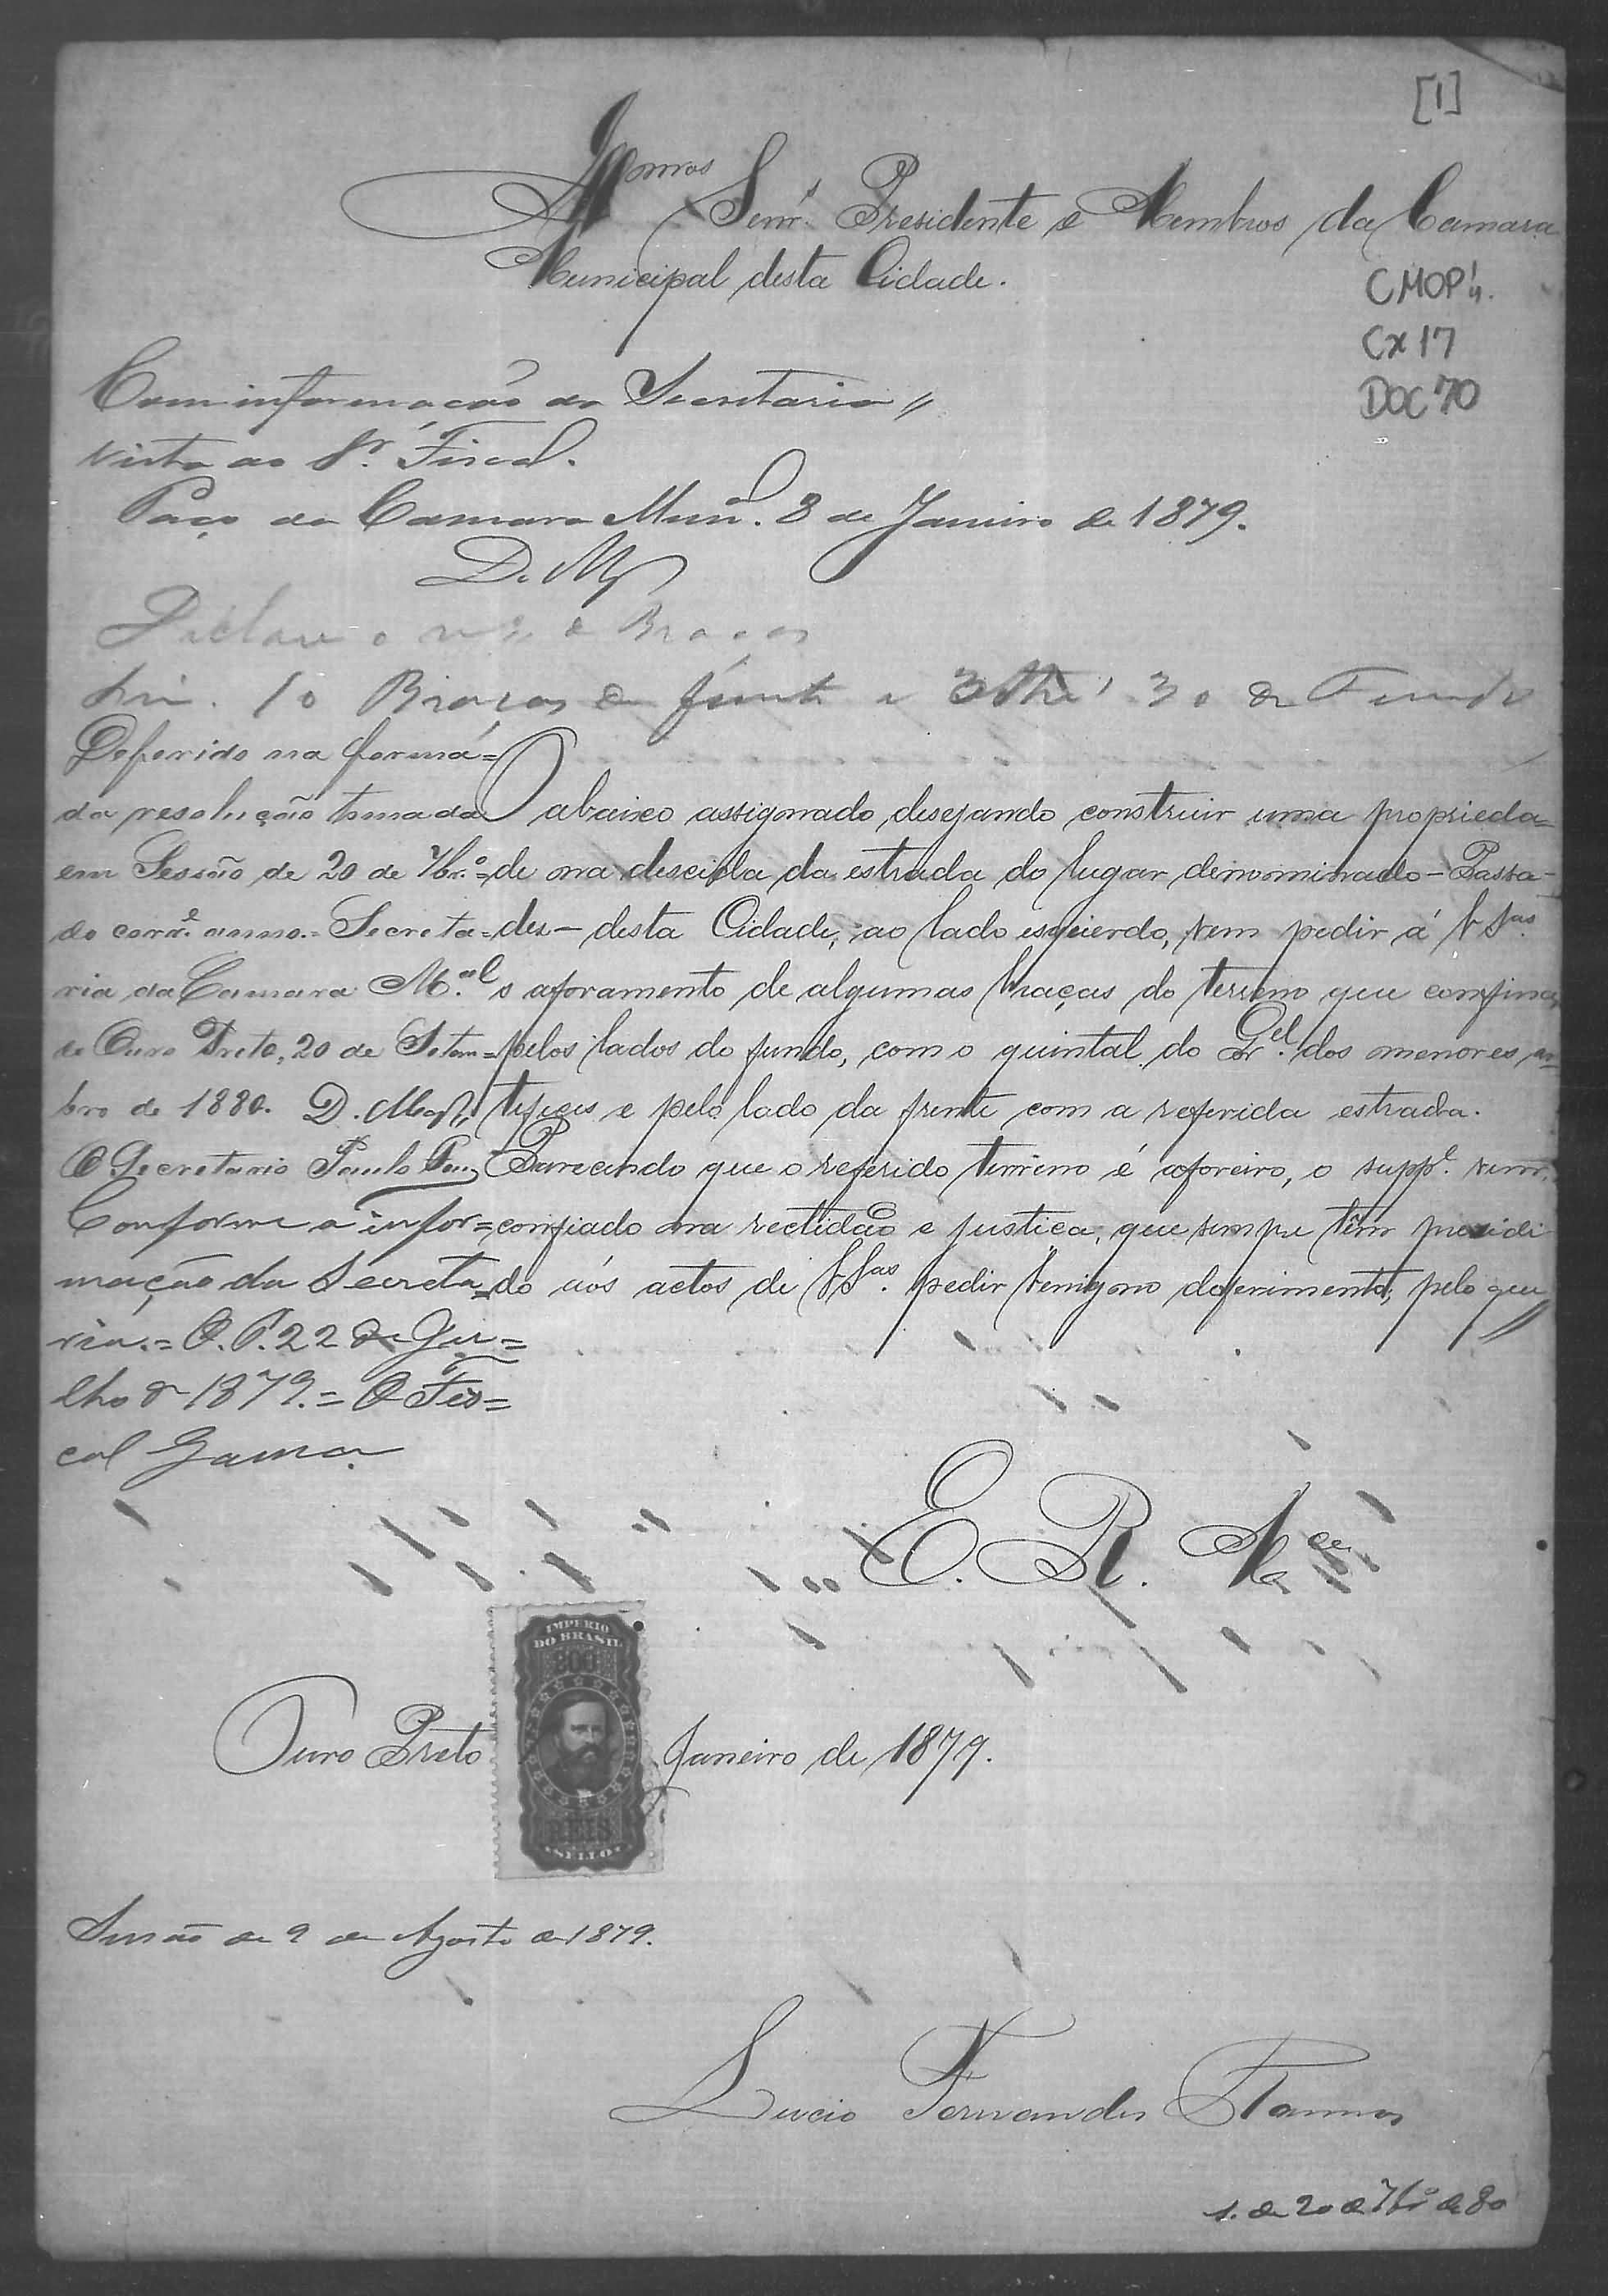 [1]
Illmos Senrs Presidente e Membros da Camara
Municipal desta Cidade.
CMOP
Cx 17
DOC 70
Com informação da Secretaria
vista ao Sr. Fiscal.
Paço da Camara Mun. 8 de Janeiro de 1879.
D. M
Declare o nº de Braças
10 Braças de frente e 30 de Fundo
Deferido na forma
da resolução tomada
em Sessão de 20 de 7bro
do corre anno. Secreta=
ria da Camara Mal
de Ouro Preto, 20 de Setem=
bro de 1880. D. Mag
O Secretario Paulo
Conforme a infor=
mação da Secreta=
ria. = O. P. 22 de Ju=
lho de 1879. = O Fis=
cal Gama.
O abaixo assignado, desejando construir uma proprieda=
de na descida da estrada do lugar denominado - Passa-
dez - desta Cidade, ao lado esquierdo, vem pedir á VSas
o aforamento de algumas braças do terreno que confina,
pelos lados do fundo, com o quintal do Qel dos menores ar=
tifices e pelo lado da frente com a referida estrada.
Parecendo que o referido terreno é aforeiro, o suppe vem,
confiado na rectidão e justiça, que sempre têm presidi
do aós actos de VSas pedir benigno deferimento, pelo que
E. R. Mce
IMPERIO
DO BRASIL
200
REIS
SELLO
Ouro Preto Janeiro de 1879.
Sessão de 9 de Agosto de 1879.
Lucio Fernandes Ramos
S. de 20 de 7bro de 80